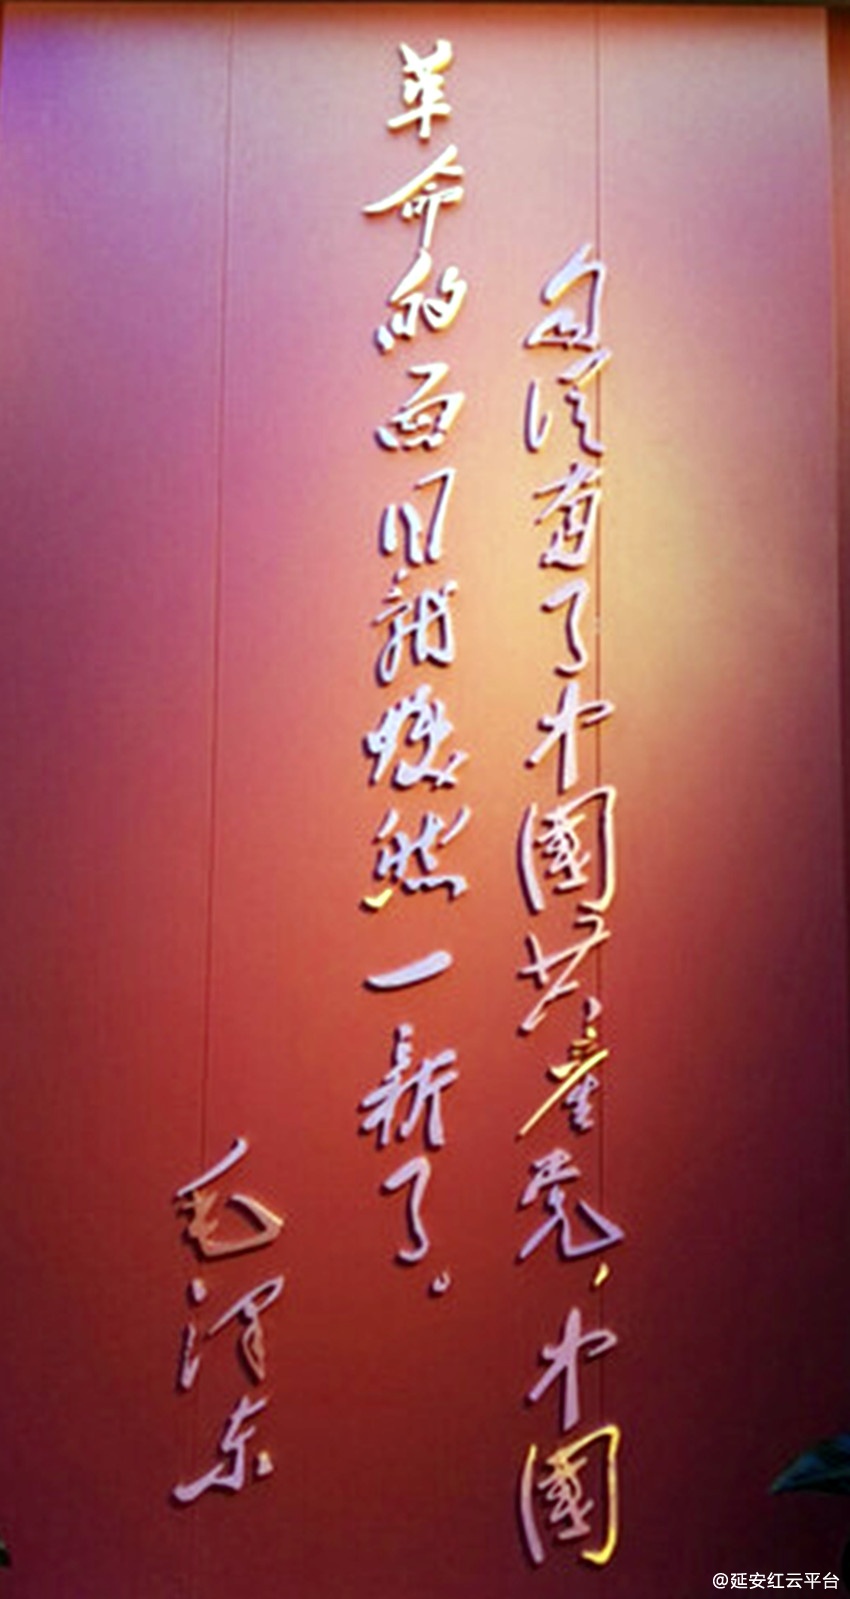 自从有了中國共產党，中國
革命的面目就焕然一新了。
毛泽东
@延安红云平台